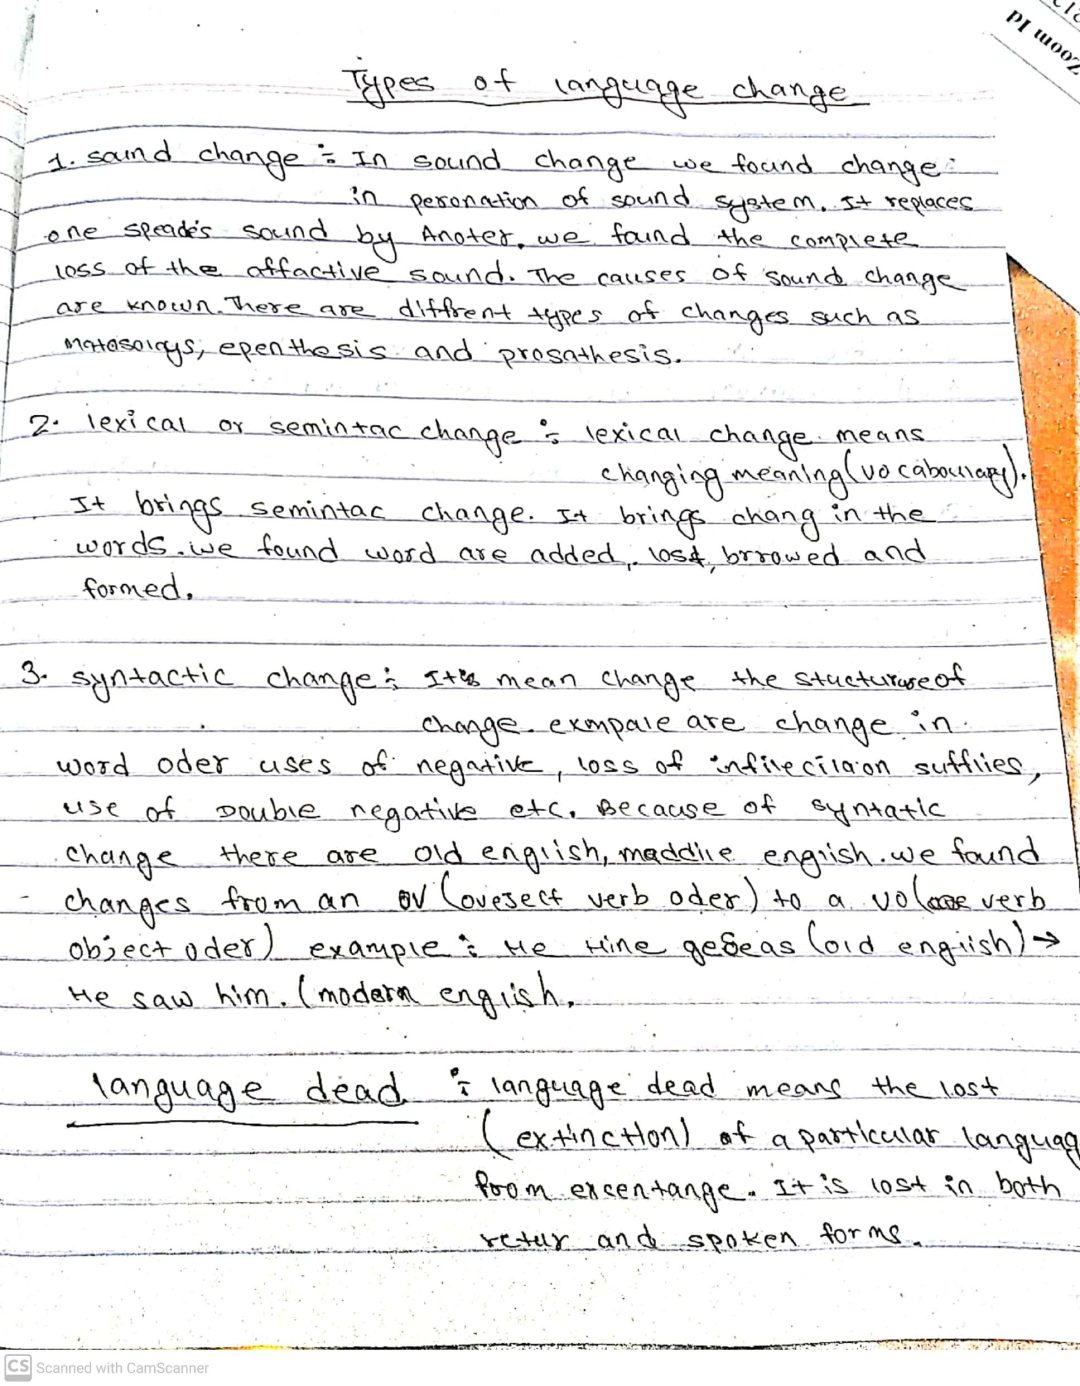 Zoom Id
Types of language change
1. saind change : In sound change we found change
in peronation of sound system. It replaces
one speade's sound by Anoter, we found the complete
loss of the affactive sound. The causes of sound change
are known. There are diffrent types of changes such as
epenthesis and prosathesis.
2. lexical or semintac change : lexical change means
changing meaning (vocaboulary).
It brings semintac change. It brings chang in the
words. we found word are added, lost, brrowed and
formed.
3. syntactic change : mean change the of
change. exmpale are change in
word oder uses of negative, loss of sufflies,
use of Double negative etc. Because of syntatic
change there are old english, maddile english. we found
changes from an OV (ovesect verb oder) to a vo verb
object oder) example : He Hine geseas (old english) →
He saw him. (modern english.
language dead : language dead means the lost
(extinction) of a particular languag
from excentange. It is lost in both
retur and spoken forms.
CS Scanned with CamScanner